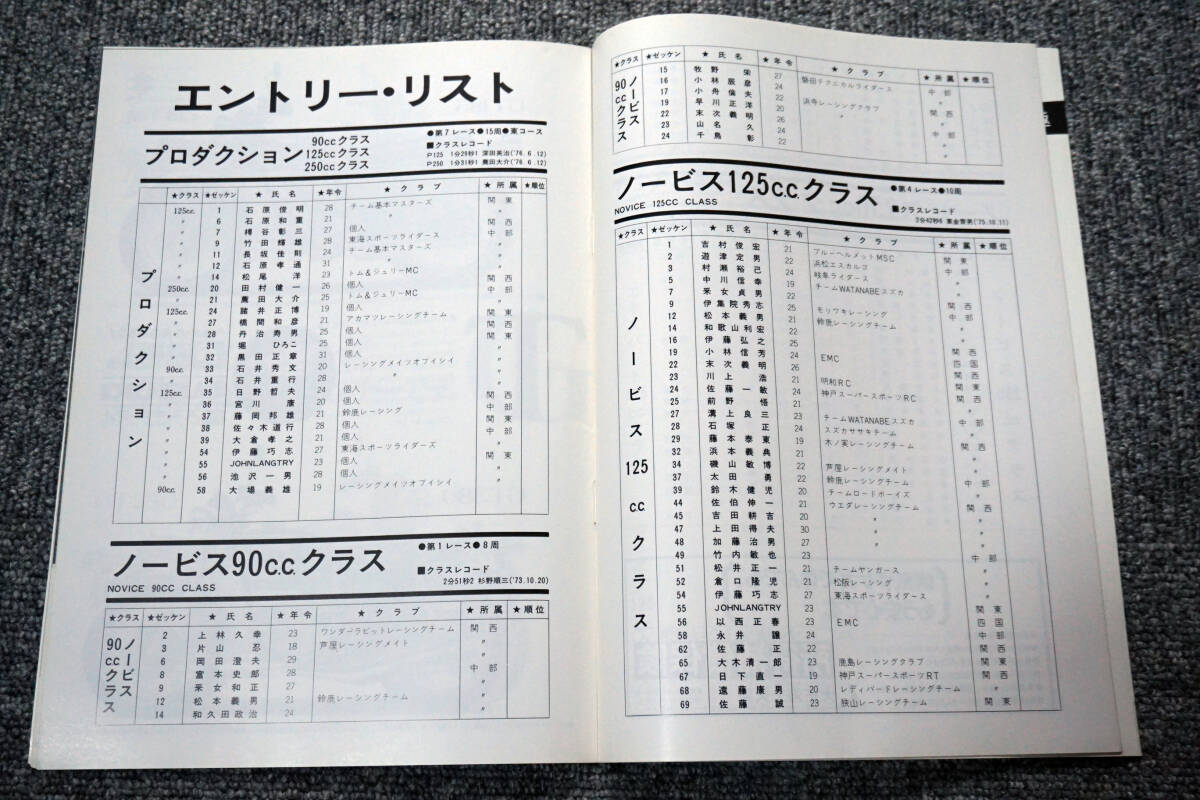 エントリー・リスト
プロダクション 90ccクラス 125ccクラス 250ccクラス
●第7レース●15周●東コース
■クラスレコード
P125 1分29秒1 深田英治('76.6.12)
P250 1分31秒1 鷹田大介('76.6.12)
★クラス ★ゼッケン ★氏名 ★年令 ★クラブ ★所属 ★順位
プロダクション
125cc. 1 石原俊明 28 チーム基本マスターズ 関東
〃 6 石原和重 21 〃 〃
〃 7 樽谷彰三 27 個人 関西
〃 9 竹田輝雄 28 東海スポーツライダース 中部
〃 11 長坂佳則 24 チーム基本マスターズ 〃
〃 12 石原孝通 31 〃 〃
〃 14 松尾洋 23 トム&ジュリーMC 〃
250cc. 20 田村健一 26 個人 関西
〃 21 鷹田大介 25 トム&ジュリーMC 中部
125cc. 24 諸井正博 19 個人 〃
〃 27 横間和彦 21 アカマツレーシングチーム 関東
〃 28 丹治寿男 25 個人 関西
〃 31 堀ひろこ 25 個人 関東
〃 32 黒田正章 31 個人 〃
90cc. 33 石井秀文 20 レーシングメイツオフィシイ 〃
〃 34 石井重行 28 〃 〃
125cc. 35 日野哲夫 24 個人 〃
〃 36 宮川康 20 個人 関西
〃 37 藤岡邦雄 21 鈴鹿レーシング 中部
〃 38 佐々木道行 28 個人 関東
〃 39 大倉孝之 21 個人 中部
〃 54 伊藤巧志 27 東海スポーツライダーズ 〃
〃 55 JOHNLANGTRY 23 個人 関東
〃 56 池沢一男 28 個人 〃
90cc. 58 大場義雄 19 レーシングメイツオフィシイ 〃
ノービス90c.c.クラス
NOVICE 90CC CLASS
●第1レース●8周
■クラスレコード
2分51秒2 杉野順三('73.10.20)
★クラス ★ゼッケン ★氏名 ★年令 ★クラブ ★所属 ★順位
ノービス90ccクラス
2 上林久幸 23 ワンダーラビットレーシングチーム 関西
3 片山忍 18 芦屋レーシングメイト 〃
6 岡田澄夫 29 〃
8 富本史郎 28 中部
9 釆女和正 27 〃
12 松本義男 21 鈴鹿レーシングチーム 〃
14 和久田政治 24 〃
★クラス ★ゼッケン ★氏名 ★年令 ★クラブ ★所属 ★順位
ノービス90ccクラス
15 牧野栄 27 磐田テクニカルライダース 中部
16 小林辰彦 24 〃
17 小舟倫夫 22 浜寺レーシングクラブ 関西
19 早川正洋 20 〃 〃
22 末次義明 26 〃
23 山名久 24 中部
24 千鳥彰 22 〃
ノービス125c.c.クラス
NOVICE 125CC CLASS
●第4レース●10周
■クラスレコード
2分42秒6 東金曹男('75.10.11)
★クラス ★ゼッケン ★氏名 ★年令 ★クラブ ★所属 ★順位
ノービス125c.c.クラス
1 吉村俊宏 21 ブルーヘルメットMSC 関東
2 遊津定男 22 浜松エスカルゴ 中部
3 村瀬裕己 24 岐阜ライダース 〃
5 中川信幸 19 チームWATANABEスズカ 〃
7 釆女貞男 22 〃
9 伊集院秀志 25 モリワキレーシング 関西
12 松本義男 21 鈴鹿レーシングチーム 中部
14 和歌山利宏 22 〃
16 伊藤弘之 25 〃
19 小林信芳 24 EMC 関西
22 末次義明 22 四国
23 川上浩 21 明和RC 関西
24 佐藤一敏 24 神戸スーパースポーツRC 関東
25 前野悟 21 関西
27 溝上良三 23 チームWATANABEスズカ 〃
28 石塚正 24 スズカササキチーム 中部
29 藤本泰東 24 木ノ実レーシングチーム 〃
32 浜本義典 21 関西
34 磯山敏博 22 芦屋レーシングメイト 〃
37 太田勇 22 鈴鹿レーシングチーム 〃
39 鈴木健児 20 チームロードボーイズ 中部
44 佐伯伸一 21 ウエダレーシングチーム 〃
45 吉田耕吉 20 〃 関西
47 上田得夫 30 〃 〃
48 加藤治男 27 〃 〃
49 竹内敏也 23
51 松井正一 21 チームヤンガース 中部
52 倉口隆児 21 松阪レーシング 〃
54 伊藤巧志 27 東海スポーツライダース 〃
55 JOHNLANGTRY 23 関東
56 以西正春 23 EMC 四国
58 永井讓 24 中部
62 佐藤正 22 関西
65 大木清一郎 23 鹿島レーシングクラブ 関東
67 日下直一 19 神戸スーパースポーツRT 関西
68 遠藤康男 20 レディバードレーシングチーム 〃
69 佐藤誠 23 狭山レーシングチーム 関東